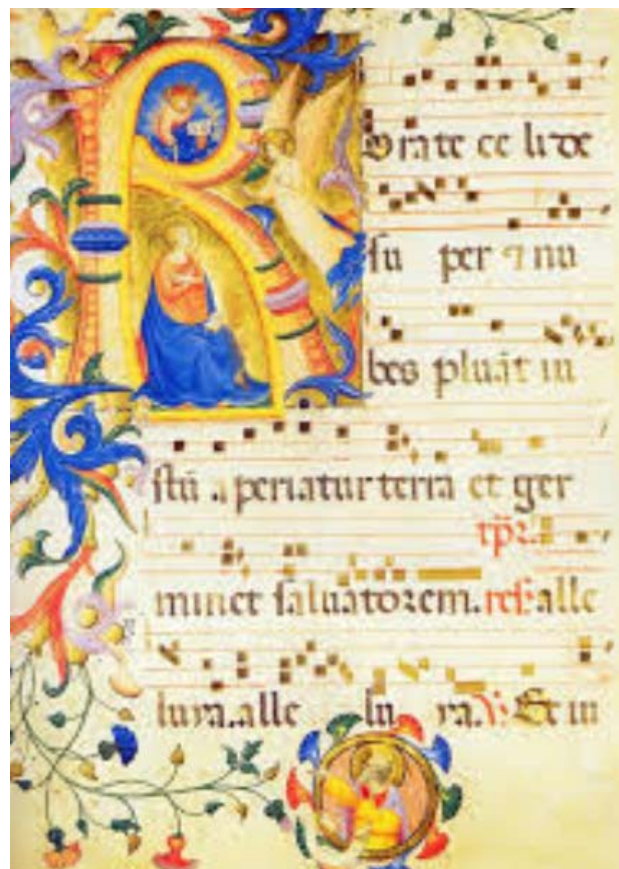 Rorate celi de
ſu per ⁊ nu
bes pluāt iu
ſtū aperiatur terra et ger
minet ſaluatorem. alle
luya. alle lu ya. ℣. Et in